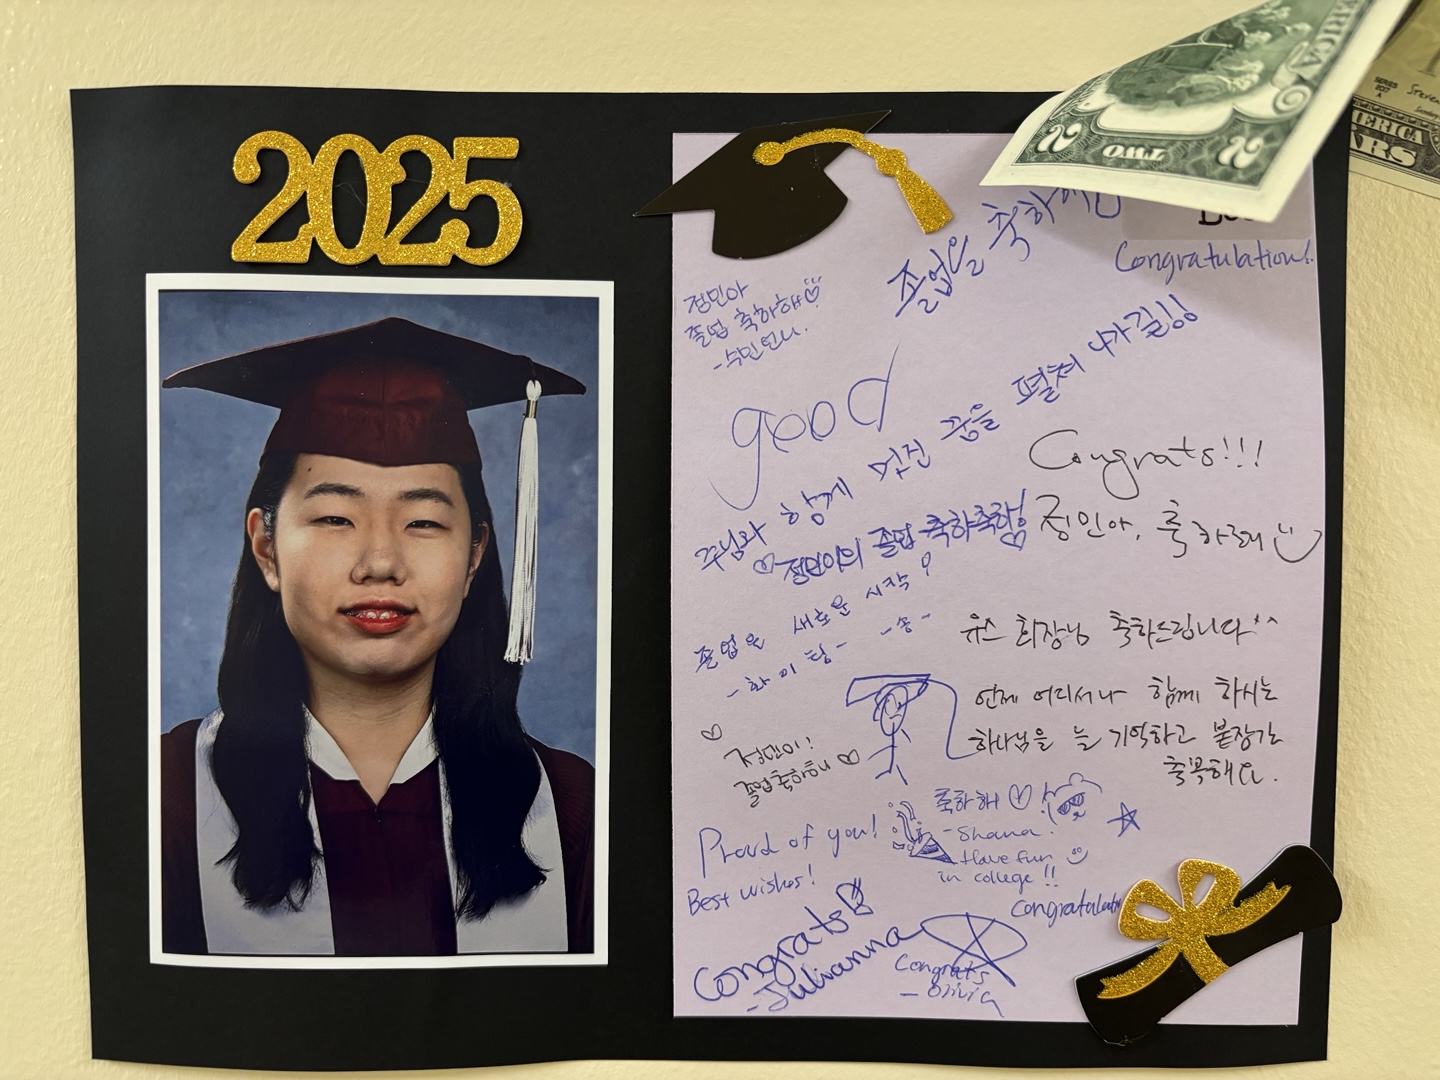 2025
TWO
2
2
SERIES
2017
A
졸업을 축하해
Congratulation!
정민아
졸업 축하해
-수민언니.
good
주님과 함께 멋진 꿈을 펼쳐 나가길!!
Congrats!!!
정민아, 축하해
정민이의 졸업 축하축하!
졸업은 새로운 시작!
-화이팅- -송-
유스 회장님 축하드립니다^^
언제 어디서나 함께 하시는
하나님을 늘 기억하고 붙잡기
축복해요.
정민이!
졸업축하해
축하해
-Shana.
Have fun
in college!!
Proud of you!
Best wishes!
Congratulati
Congrats
-Julianna
Congrats
-Olivia